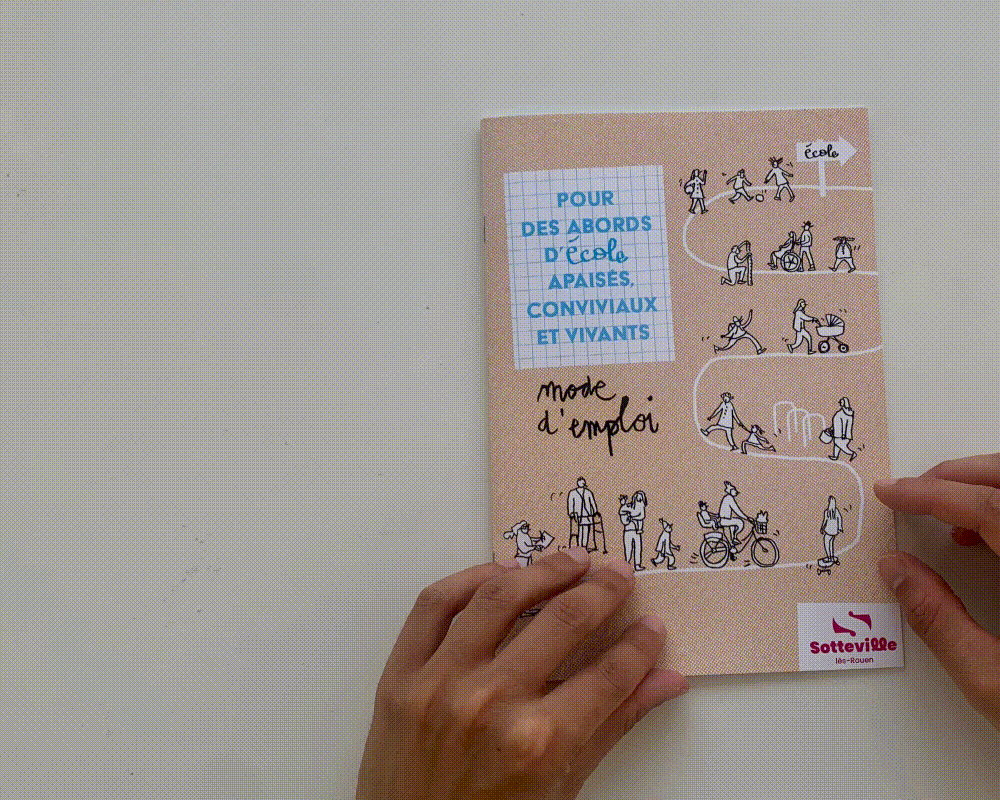 école
POUR
DES ABORDS
D'école
APAISÉS,
CONVIVIAUX
ET VIVANTS
mode
d'emploi
Sotteville
lès-Rouen